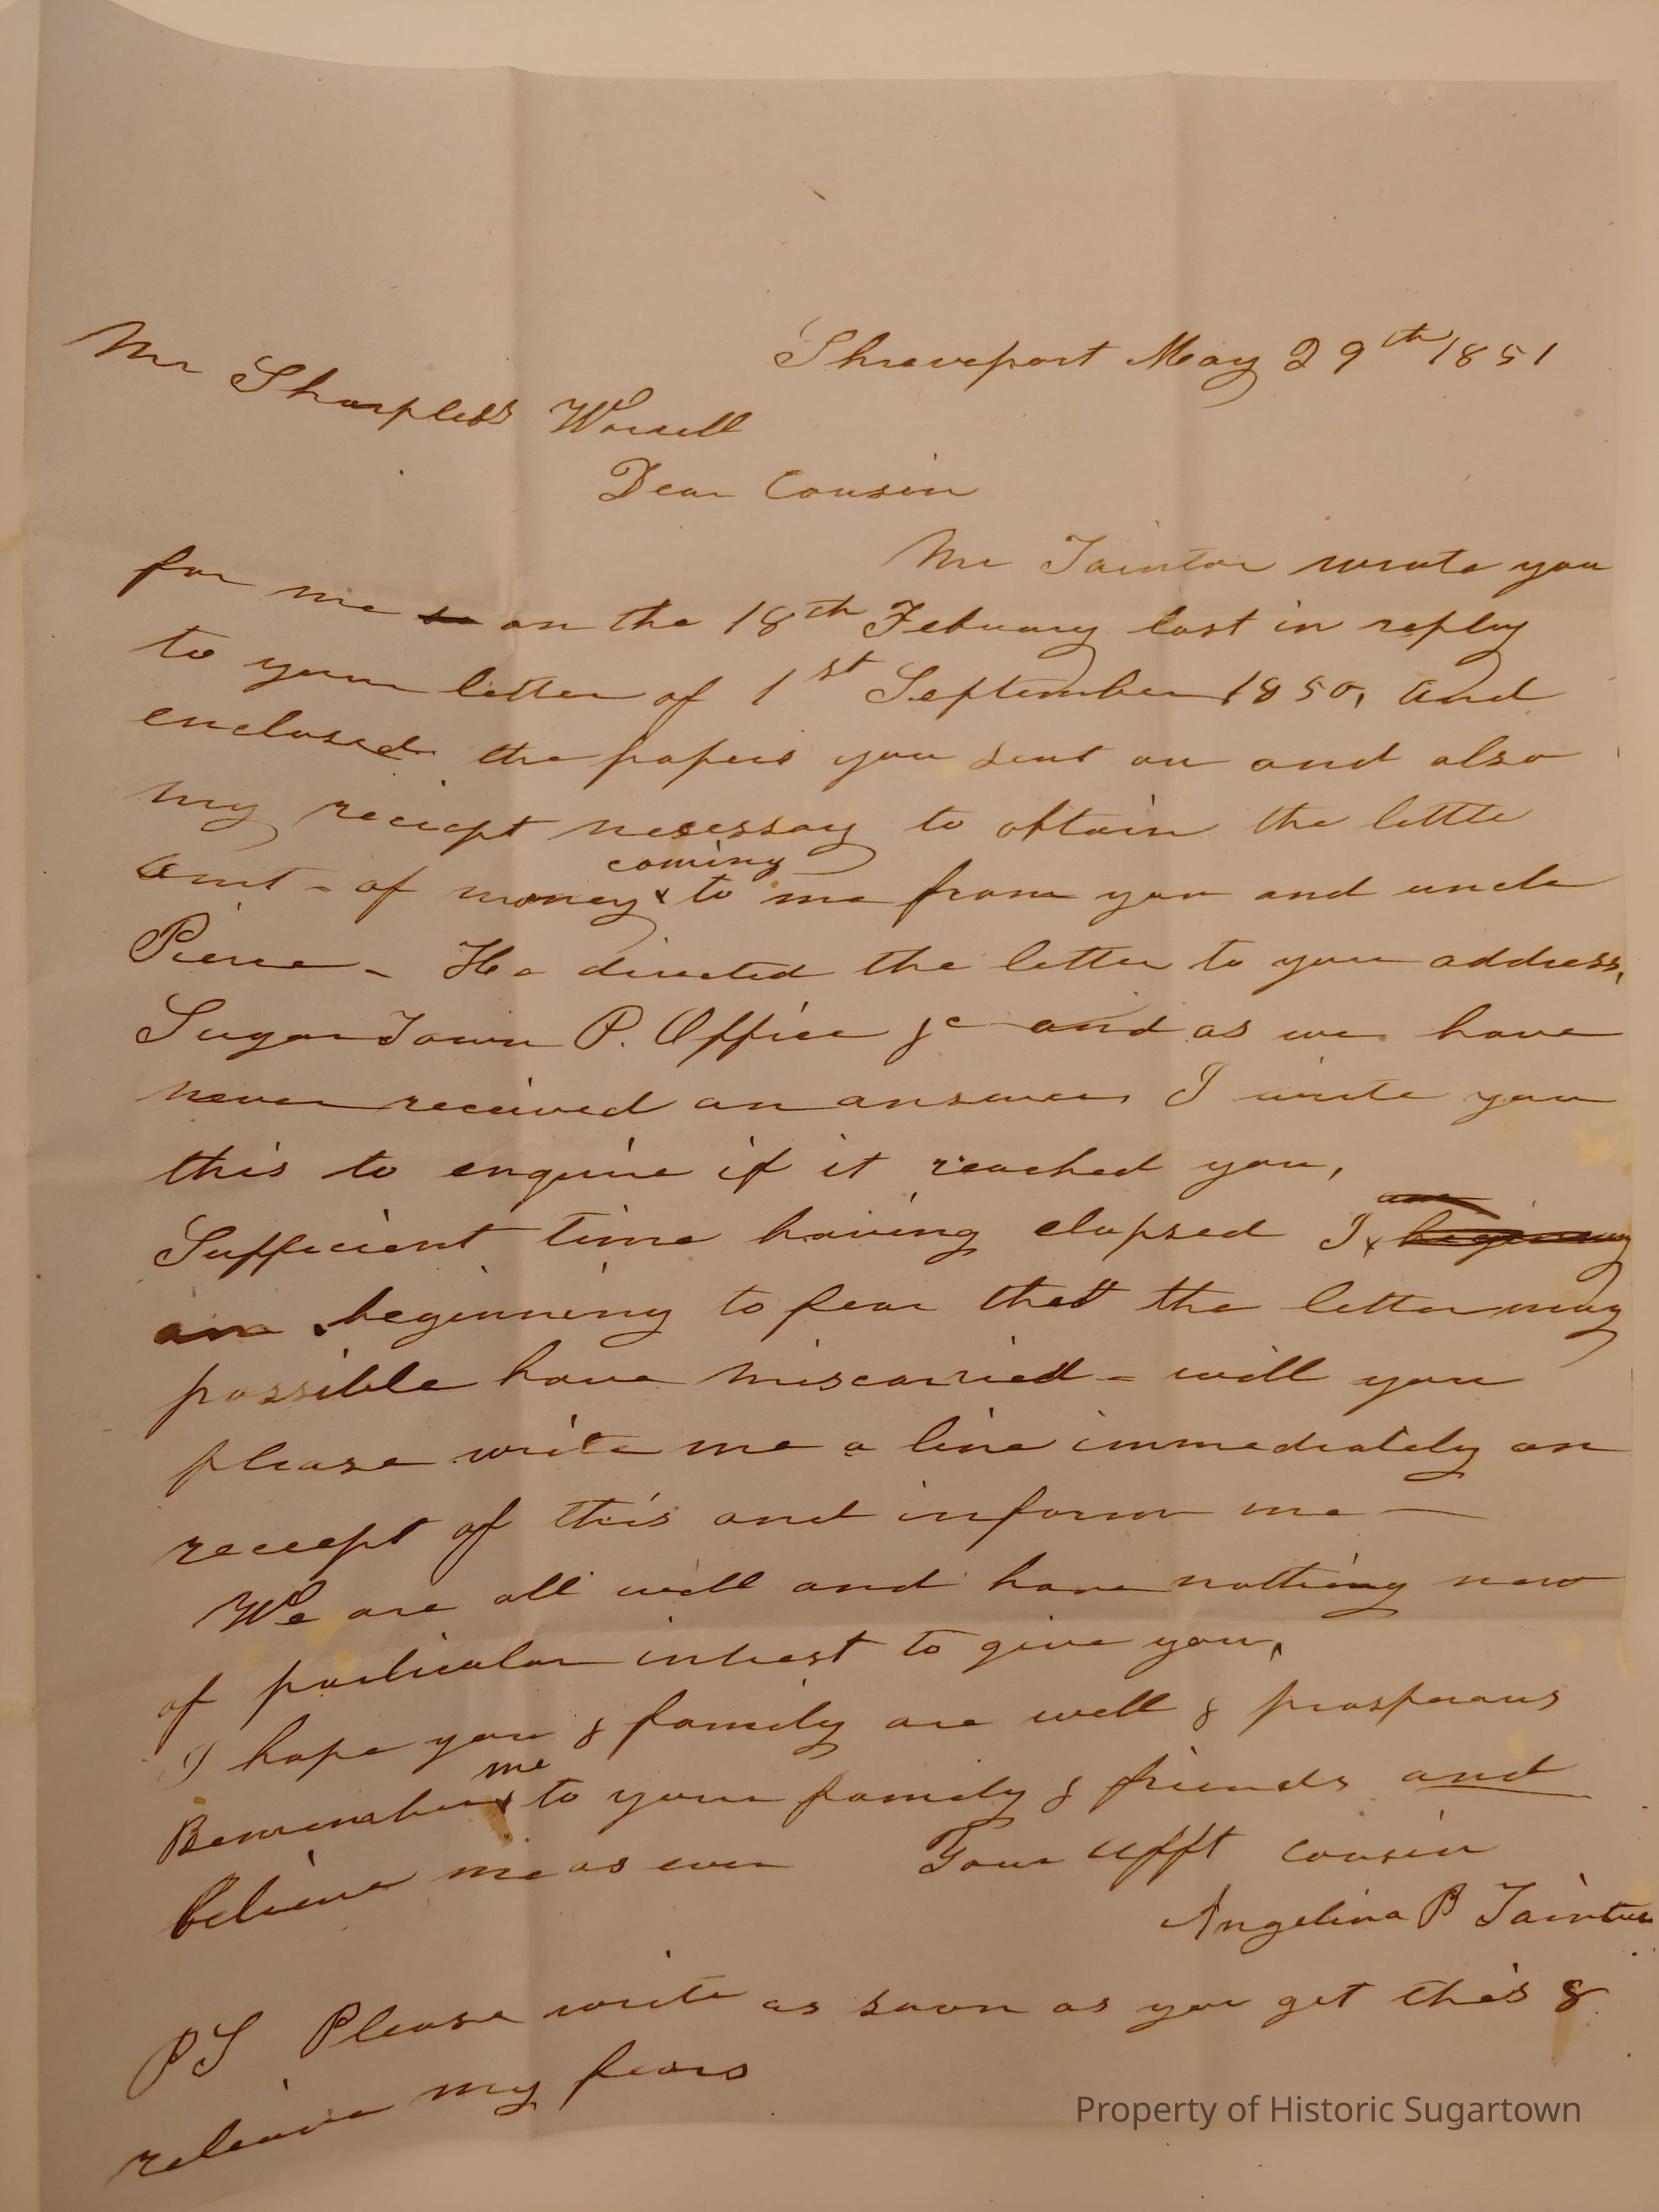 Shreveport May 29th 1851
Mr Sharpless Worrell
Dear Cousin
Mr Taintor wrote you
for me so on the 18th Febuary last in reply
to your letter of 1st September 1850, and
enclosed the papers you sent on and also
my reciept nesessary to obtain the little
amt - of money coming to me from you and uncle
Pierce - He directed the letter to your address,
Sugar Town P. Office &c and as we have
never received an answer, I write you
this to enquire if it reached you,
Sufficient time having elapsed I am begining
am beginning to fear that the letter may
possible have miscarried - will you
please write me a line immediately on
receept of this and inform me —
We are all well and have nothing new
of particular intrest to give you,
I hope you & family are well & prosperous
Remember me to your family & friends and
believe me as ever Your afft cousin
Angelina B Taintor
PS Please write as soon as you get this &
releive my fears
Property of Historic Sugartown